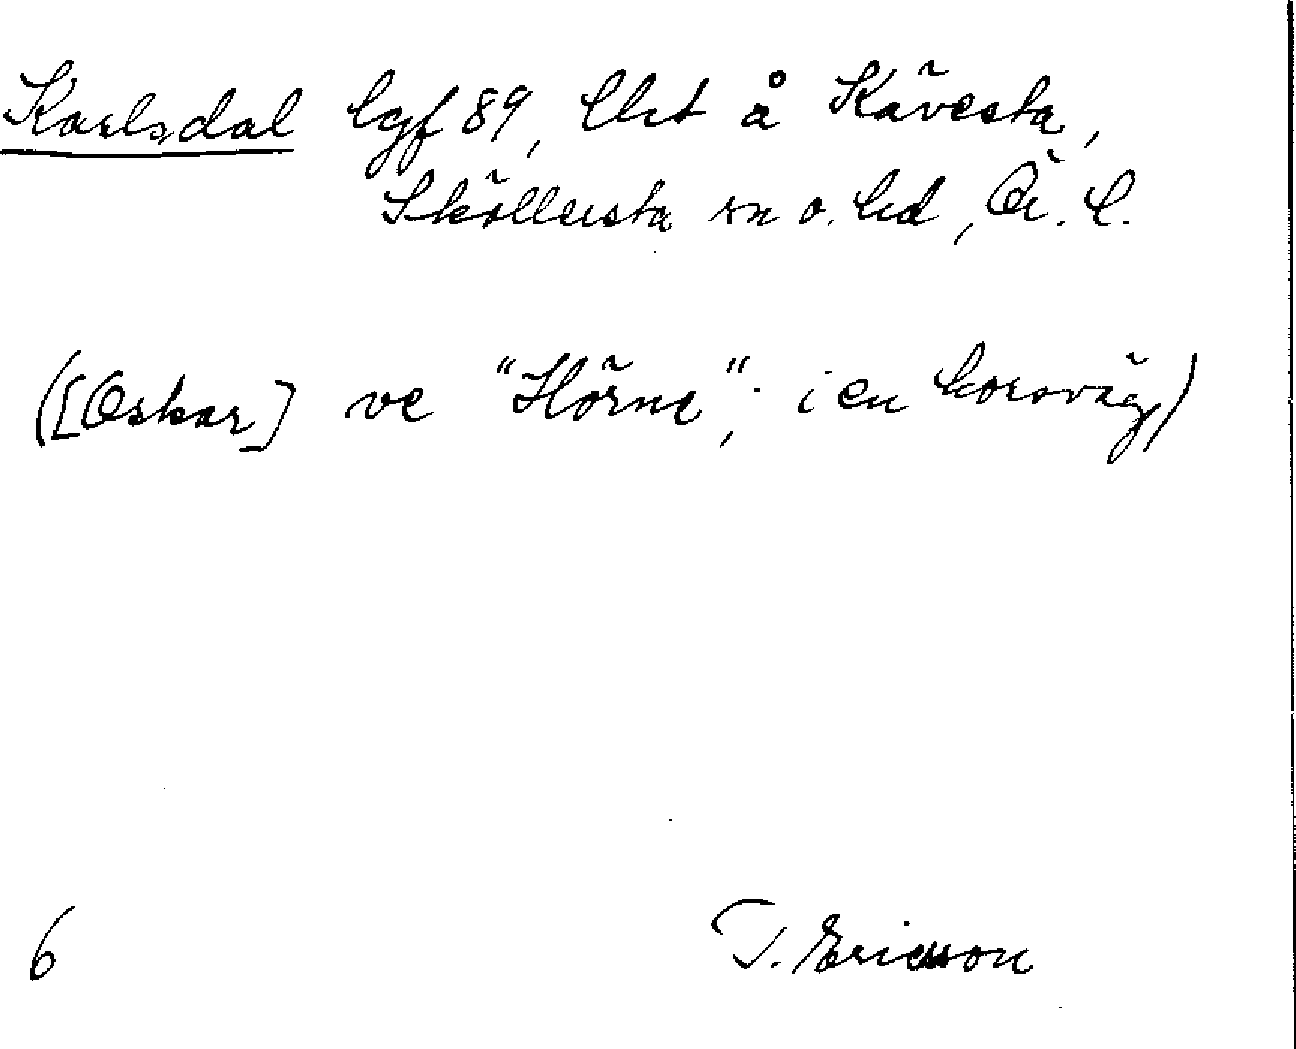 Karlsdal lgf 89, lht å Kävesta,
Sköllersta sn o. hd, Ör. l.
([Oskar] ve "Hörne"; i en korsväg)
6
T. Ericsson